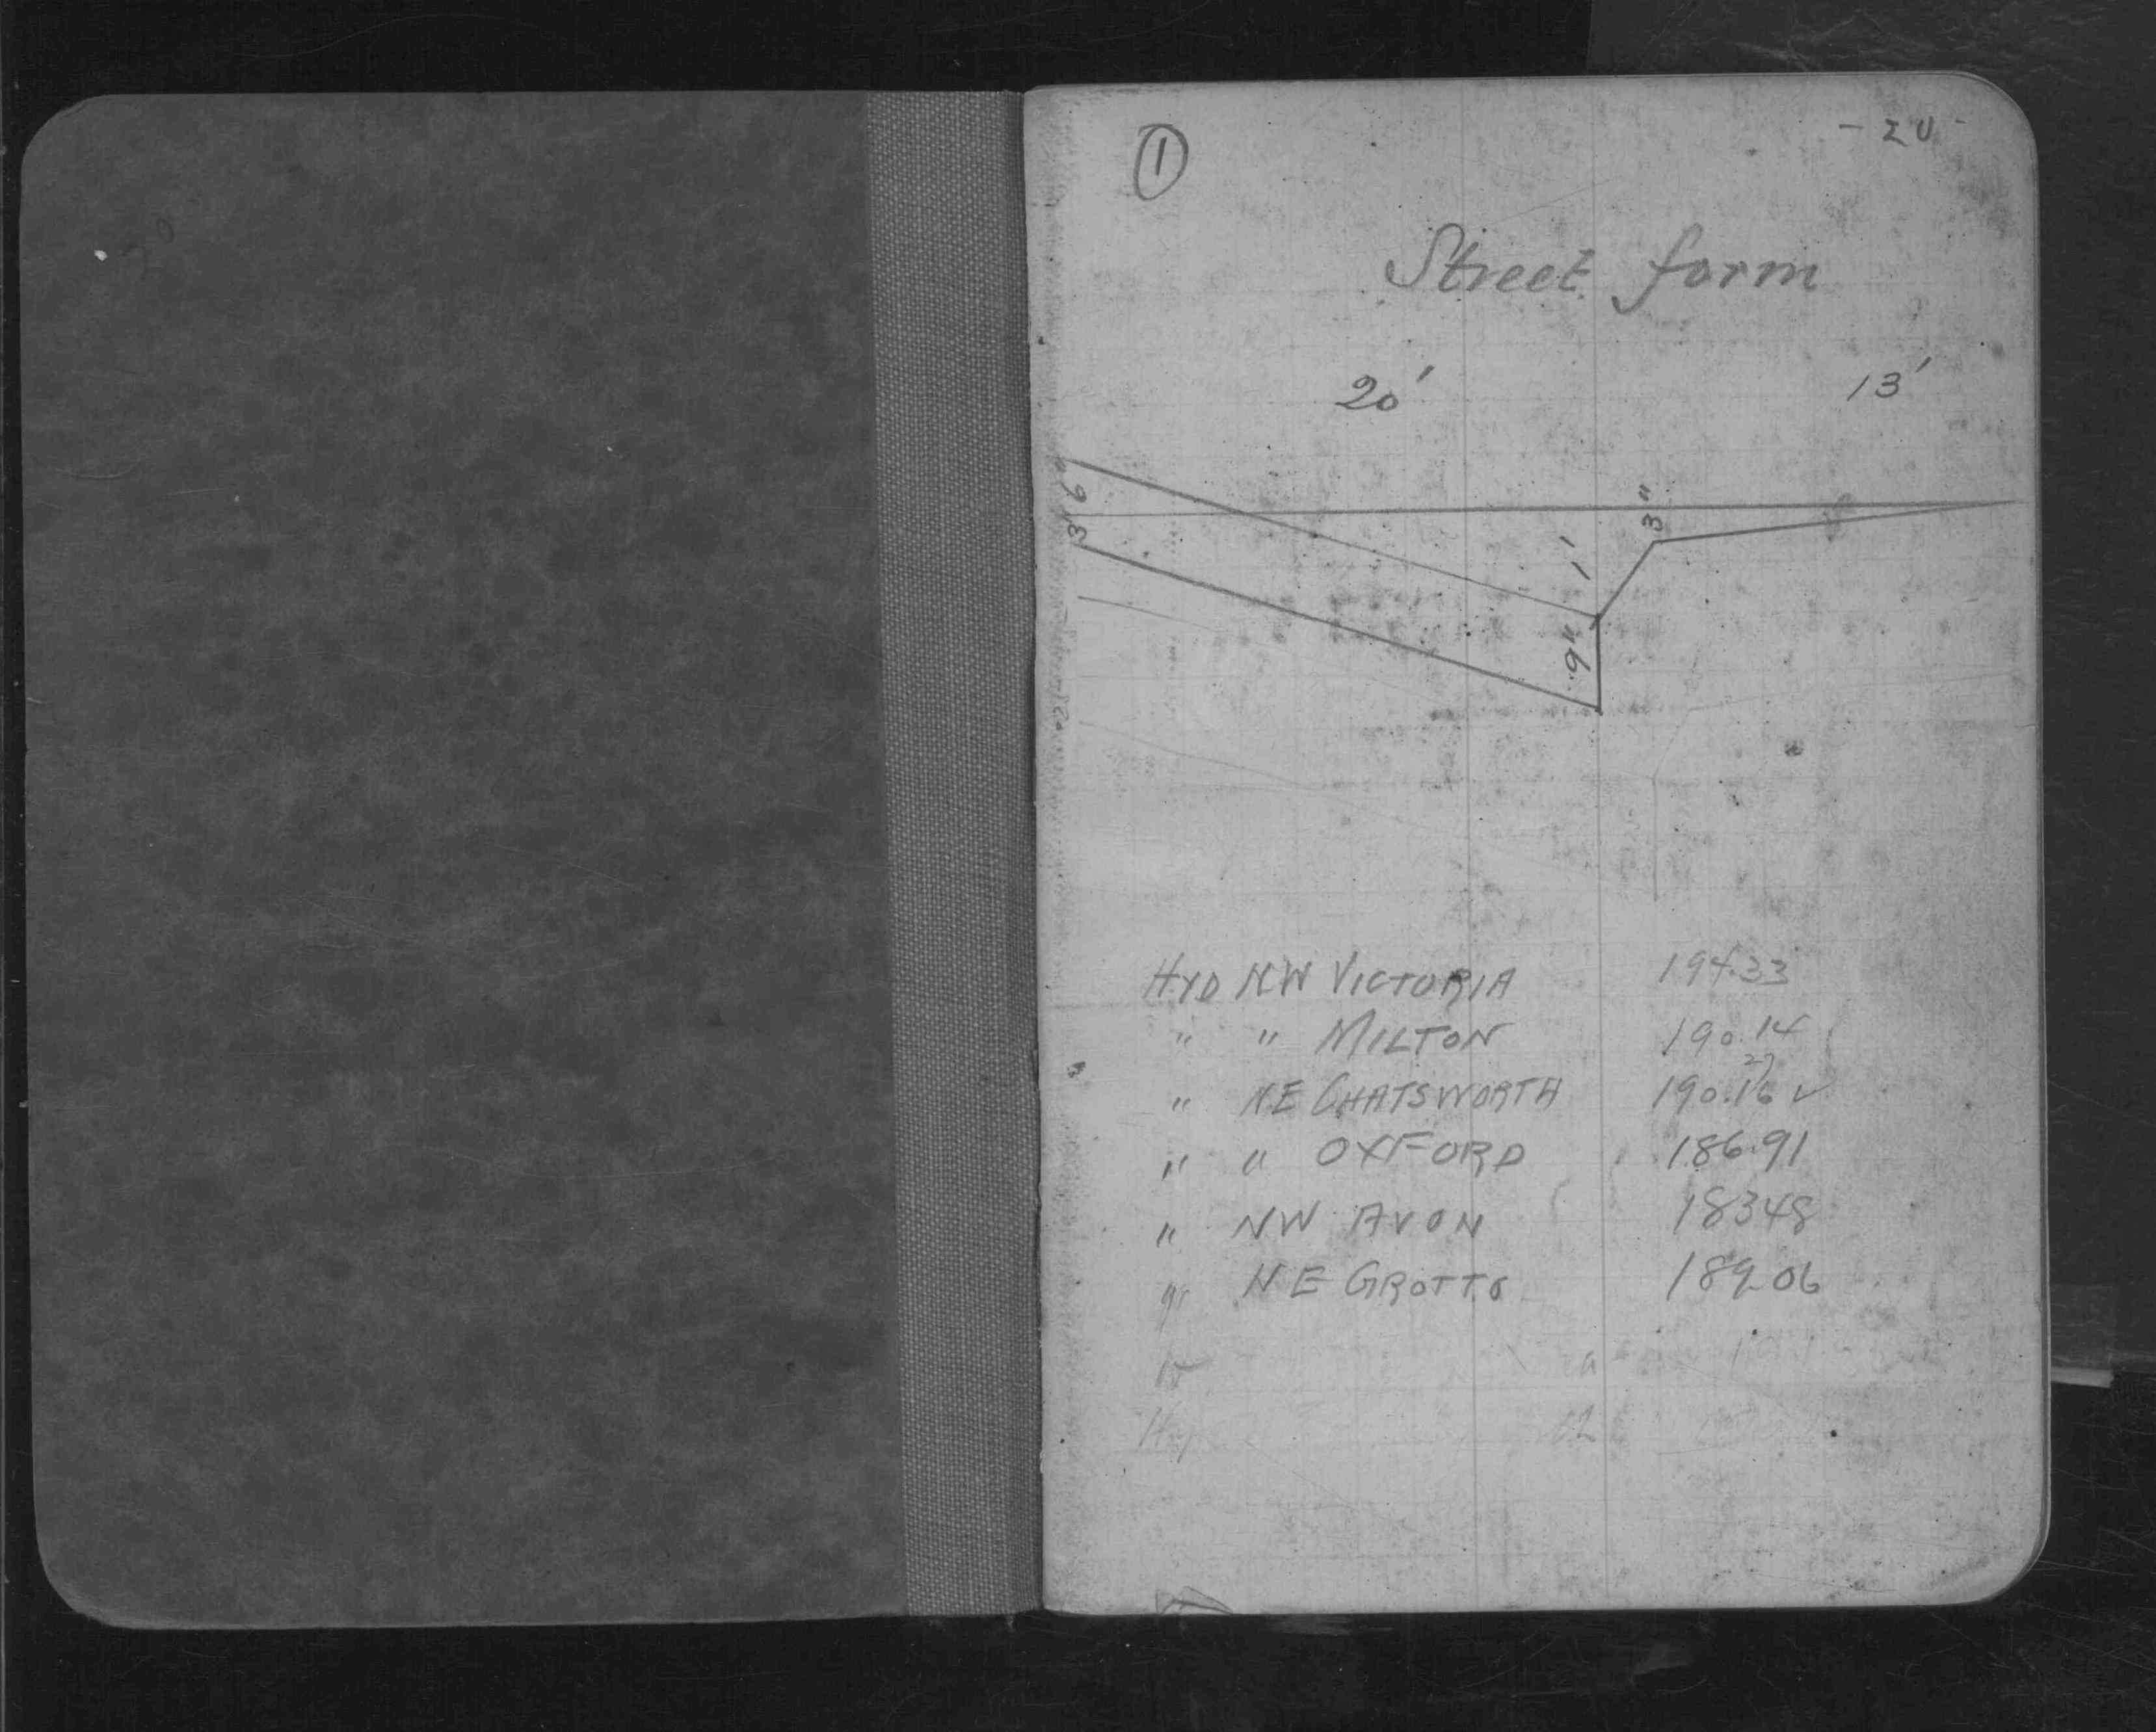 1
- 20 -
Street form
20' 13'
9
3
3"
1'
9"
HYD NW VICTORIA 194.33
" " MILTON 190.14
27
" NE CHATSWORTH 190.16 ✓
" " OXFORD 186.91
" NW AVON 18348
" NE GROTTO 189.06